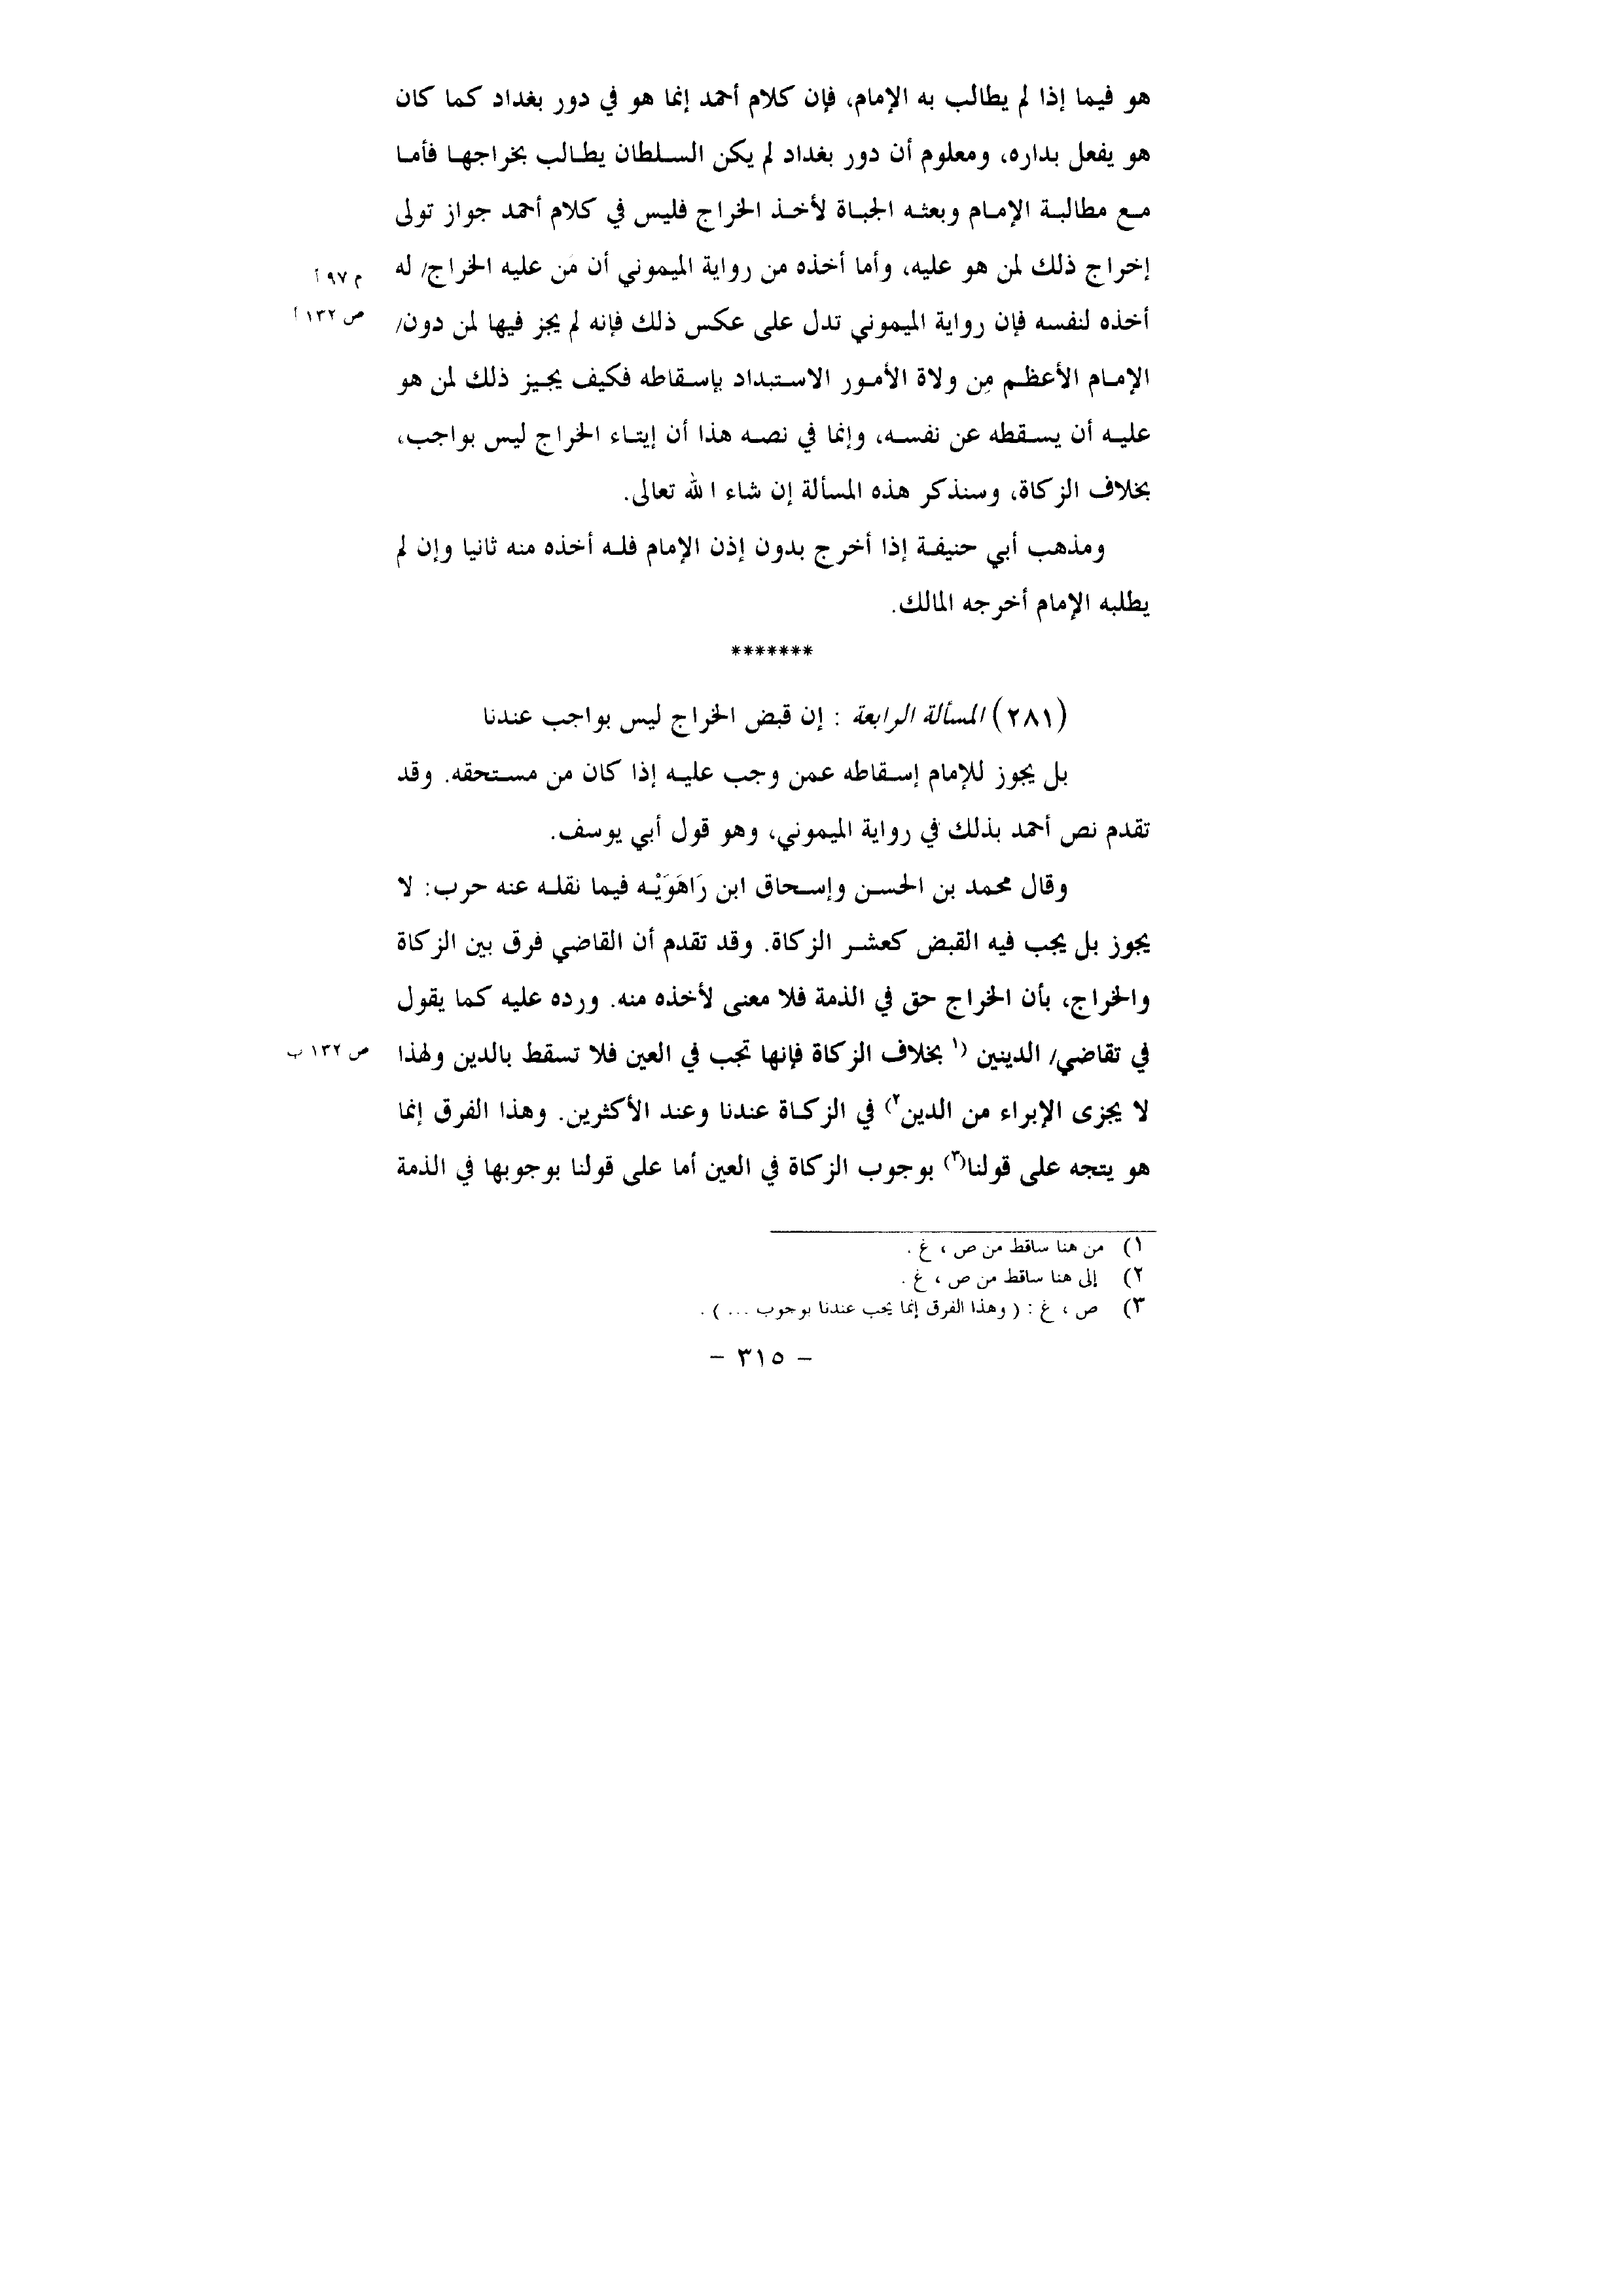 هو فيما إذا لم يطالب به الإمام، فإن كلام أحمد إنما هو في دور بغداد كما كان
هو يفعل بداره، ومعلوم أن دور بغداد لم يكن السلطان يطالب بخراجها فأما
مع مطالبة الإمام وبعثه الجباة لأخذ الخراج فليس في كلام أحمد جواز تولى
إخراج ذلك لمن هو عليه، وأما أخذه من رواية الميموني أن مَن عليه الخراج/ له
م ٩٧ أ
أخذه لنفسه فإن رواية الميموني تدل على عكس ذلك فإنه لم يجز فيها لمن دون/
ص ١٣٢ أ
الإمام الأعظم مِن ولاة الأمور الاستبداد بإسقاطه فكيف يجيز ذلك لمن هو
عليه أن يسقطه عن نفسه، وإنما في نصه هذا أن إيتاء الخراج ليس بواجب،
بخلاف الزكاة، وسنذكر هذه المسألة إن شاء الله تعالى.
ومذهب أبي حنيفة إذا أخرج بدون إذن الإمام فله أخذه منه ثانيا وإن لم
يطلبه الإمام أخرجه المالك.
*******
(٢٨١) المسألة الرابعة : إن قبض الخراج ليس بواجب عندنا
بل يجوز للإمام إسقاطه عمن وجب عليه إذا كان من مستحقه. وقد
تقدم نص أحمد بذلك في رواية الميموني، وهو قول أبي يوسف.
وقال محمد بن الحسن وإسحاق ابن رَاهَوَيْه فيما نقله عنه حرب: لا
يجوز بل يجب فيه القبض كعشر الزكاة. وقد تقدم أن القاضي فرق بين الزكاة
والخراج، بأن الخراج حق في الذمة فلا معنى لأخذه منه. ورده عليه كما يقول
في تقاضي/ الدينين (١ بخلاف الزكاة فإنها تجب في العين فلا تسقط بالدين ولهذا
ص ١٣٢ ب
لا يجزى الإبراء من الدين٢) في الزكاة عندنا وعند الأكثرين. وهذا الفرق إنما
هو يتجه على قولنا(٣) بوجوب الزكاة في العين أما على قولنا بوجوبها في الذمة
١) من هنا ساقط من ص ، غ .
٢) إلى هنا ساقط من ص ، غ .
٣) ص ، غ : ( وهذا الفرق إنما يجب عندنا بوجوب ... ) .
– ٣١٥ –